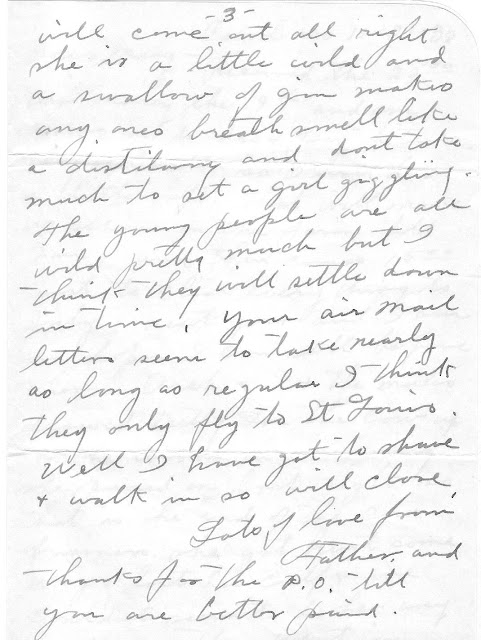 -3-
will come out all right
she is a little wild and
a swallow of gin makes
any ones breath smell like
a distillary and dont take
much to set a girl giggling.
The young people are all
wild pretty much but I
think they will settle down
in time. Your air mail
letters seem to take nearly
as long as regular I think
they only fly to St Louis.
Well I have got to shave
+ walk in so will close
Lots of love from
Father. and
thanks for the P.O. till
you are better paid.